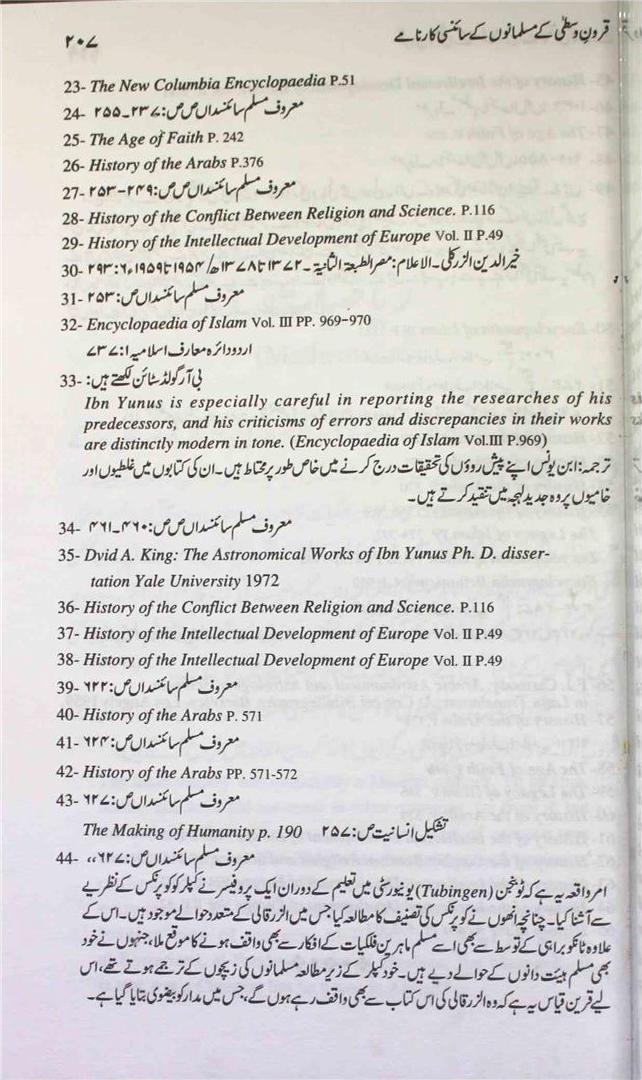 قرونِ وسطیٰ کے مسلمانوں کے سائنسی کارنامے ۲۰۷
23- The New Columbia Encyclopaedia P.51
24- معروف مسلم سائنسداں ص ص: ۲۳۷۔۲۵۵
25- The Age of Faith P. 242
26- History of the Arabs P.376
27- معروف مسلم سائنسداں ص ص: ۲۴۹-۲۵۳
28- History of the Conflict Between Religion and Science. P.116
29- History of the Intellectual Development of Europe Vol. II P.49
30- خیر الدین الزرکلی۔ الاعلام: مصر الطبعۃ الثانیۃ۔ ۱۳۷۲ تا ۱۳۷۸ھ/ ۱۹۵۴ تا ۱۹۵۹ء، ۶: ۲۹۳
31- معروف مسلم سائنسداں ص: ۲۵۳
32- Encyclopaedia of Islam Vol. III PP. 969-970
اردو دائرہ معارف اسلامیہ ۱: ۷۳۷
33- بی آر گولڈ سٹائن لکھتے ہیں:-
Ibn Yunus is especially careful in reporting the researches of his
predecessors, and his criticisms of errors and discrepancies in their works
are distinctly modern in tone. (Encyclopaedia of Islam Vol.III P.969)
ترجمہ: ابن یونس اپنے پیش روؤں کی تحقیقات درج کرنے میں خاص طور پر محتاط ہیں۔ ان کی کتابوں میں غلطیوں اور
خامیوں پر وہ جدید لہجہ میں تنقید کرتے ہیں۔
34- معروف مسلم سائنسداں ص ص: ۴۶۰۔۴۶۱
35- Dvid A. King: The Astronomical Works of Ibn Yunus Ph. D. disser-
tation Yale University 1972
36- History of the Conflict Between Religion and Science. P.116
37- History of the Intellectual Development of Europe Vol. II P.49
38- History of the Intellectual Development of Europe Vol. II P.49
39- معروف مسلم سائنسداں ص: ۶۲۲
40- History of the Arabs P. 571
41- معروف مسلم سائنسداں ص: ۶۲۴
42- History of the Arabs PP. 571-572
43- معروف مسلم سائنسداں ص: ۶۲۷
The Making of Humanity p. 190 تشکیل انسانیت ص: ۲۵۷
44- معروف مسلم سائنسداں ص: ۶۲۷،،
امر واقعہ یہ ہے کہ ٹوبنجن (Tubingen) یونیورسٹی میں تعلیم کے دوران ایک پروفیسر نے کپلر کو کوپرنکس کے نظریے
سے آشنا کیا۔ چنانچہ انھوں نے کوپرنکس کی تصنیف کا مطالعہ کیا جس میں الزرقالی کے متعدد حوالے موجود ہیں۔ اس کے
علاوہ ٹائکو براہی کے توسط سے بھی اسے مسلم ماہرین فلکیات کے افکار سے بھی واقف ہونے کا موقع ملا، جنہوں نے خود
بھی مسلم ہیئت دانوں کے حوالے دیے ہیں۔ خود کپلر کے زیر مطالعہ مسلمانوں کی زیچوں کے ترجمے ہوتے تھے، اس
لیے قرین قیاس یہ ہے کہ وہ الزرقالی کی اس کتاب سے بھی واقف رہے ہوں گے، جس میں مدار کو بیضوی بتایا گیا ہے۔